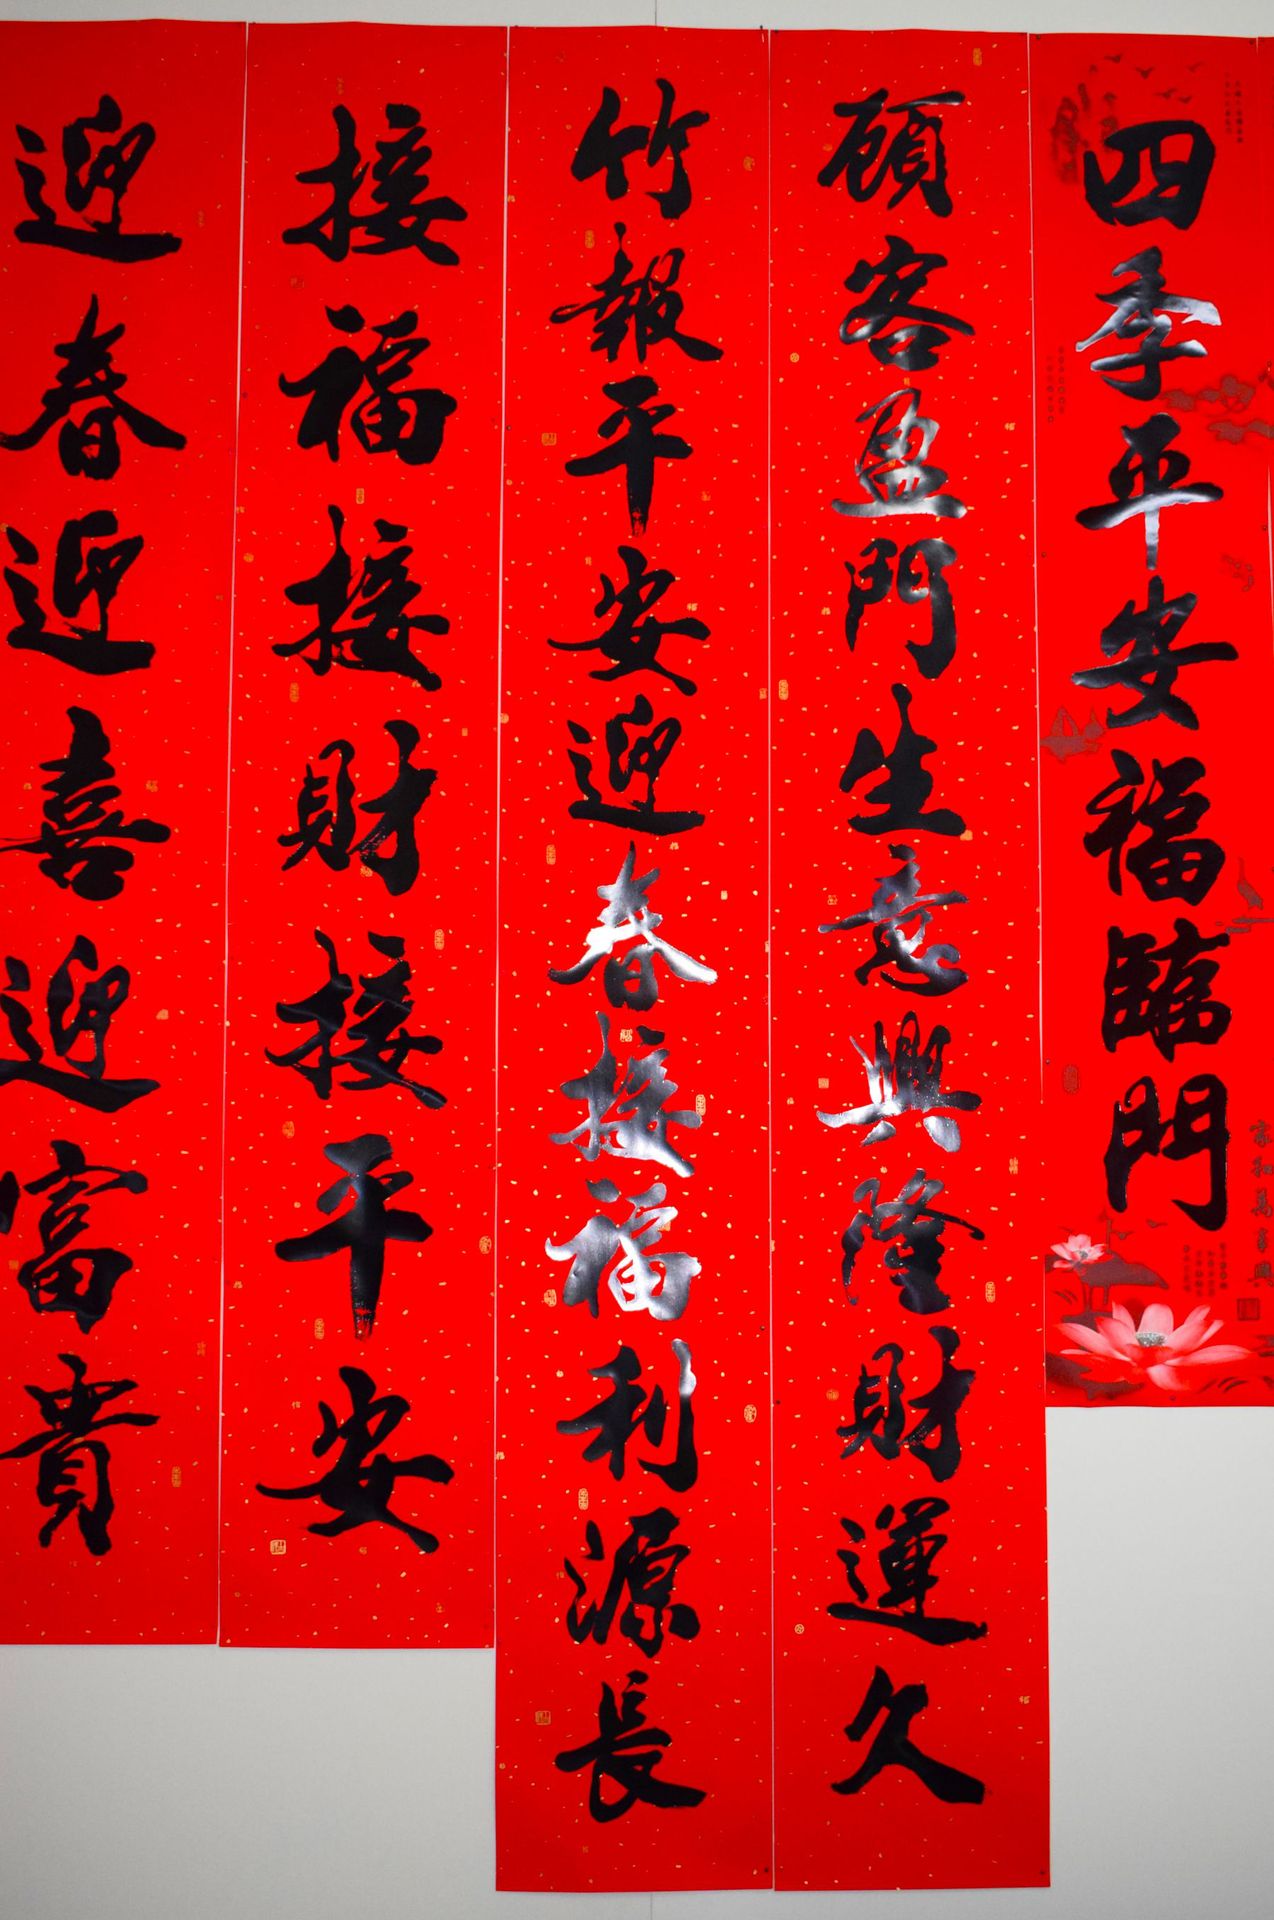 四季平安福臨門
家和萬事興
顧客盈門生意興隆財運久
竹報平安迎春接福利源長
接福接財接平安
迎春迎喜迎富貴